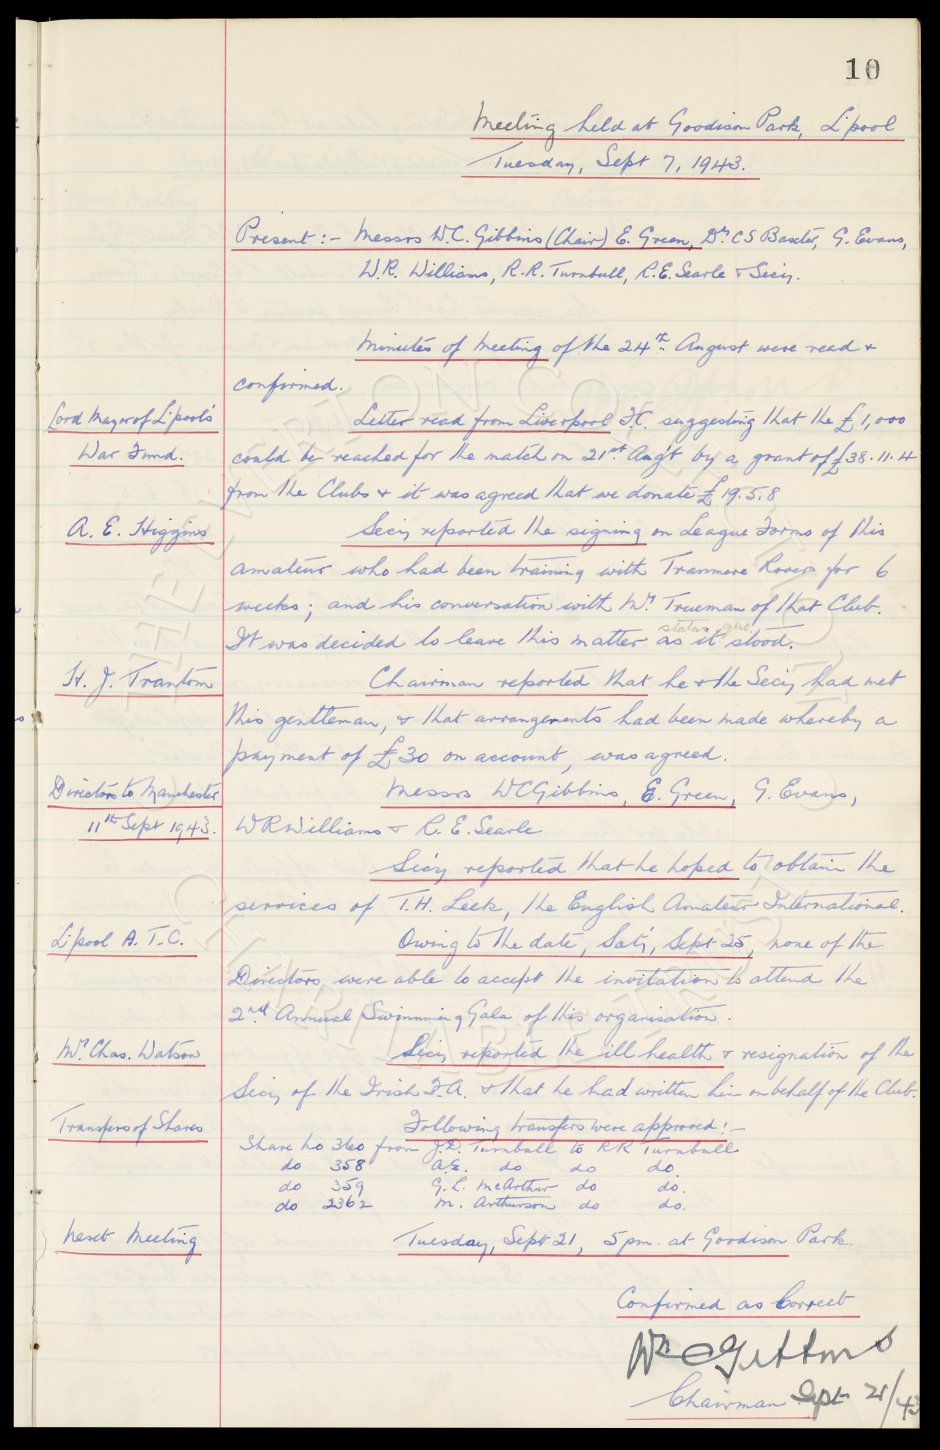 10
Meeting held at Goodison Park, L'pool
Tuesday, Sept 7, 1943.
Present :- Messrs W.C. Gibbins (Chair) E. Green, Dr CS Baxter, G. Evans,
W.R. Williams, R.R. Turnbull, R.E. Searle & Secy.
Minutes of Meeting of the 24th August were read &
confirmed.
Lord Mayor of L'pool's
War Fund.
Letter read from Liverpool F.C. suggesting that the £1,000
could be reached for the match on 21st Aug't by a grant of £38.11.4
from the Clubs & it was agreed that we donate £19.5.8
A. E. Higgins
Secy reported the signing on League Forms of this
amateur who had been training with Tranmere Rovers for 6
weeks; and his conversation with Mr Trueman of that Club.
status quo.
It was decided to leave this matter as it stood.
H. J. Trantom
Chairman reported that he & the Secy had met
this gentleman, & that arrangements had been made whereby a
payment of £30 on account, was agreed.
Directors to Manchester
11th Sept 1943.
Messrs WC Gibbins, E. Green, G. Evans,
WR Williams & R. E. Searle
Secy reported that he hoped to obtain the
services of T.H. Leek, the English Amateur International.
L'pool A.T.C.
Owing to the date, Sat'y, Sept 25, none of the
Directors were able to accept the invitation to attend the
2nd Annual Swimming Gala of this organisation.
Mr Chas. Watson
Secy reported the ill health & resignation of the
Secy of the Irish F.A. & that he had written him on behalf of the Club.
Transfers of Shares
Following transfers were approved:-
Share No 360 from J.D. Turnbull to RR Turnbull
do 358 A.E. do do do.
do 359 G.L. McArthur do do.
do 2362 M. Arthurson do do.
Next Meeting
Tuesday, Sept 21, 5pm. at Goodison Park.
Confirmed as Correct
Wm C Gibbins
Chairman Sept 21/43
THE EVERTON COLLECTION CHARITABLE TRUST